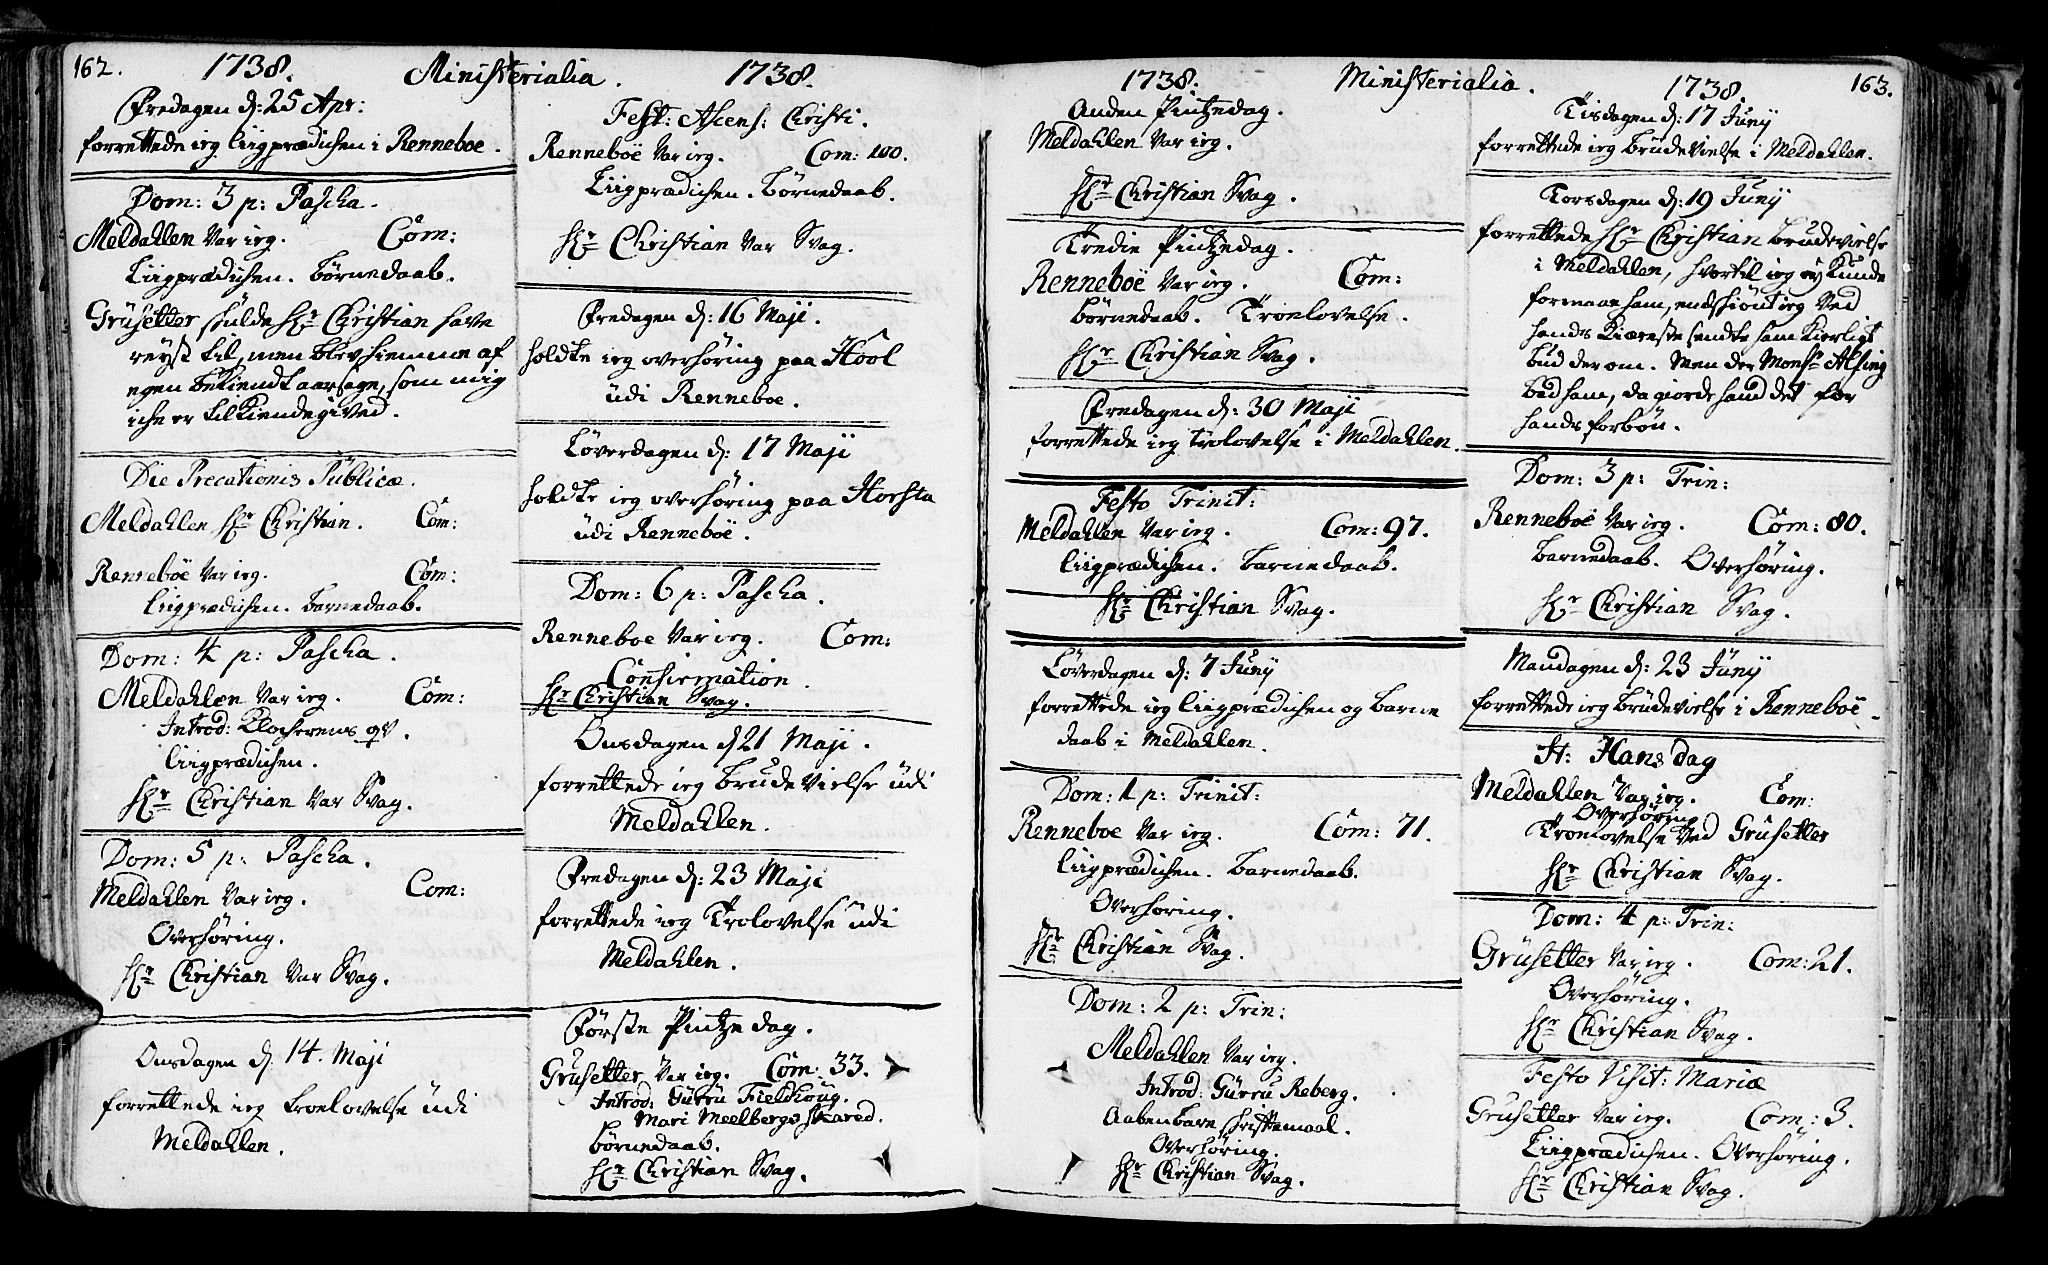 162. 1738. Ministerialia. 1738.
Fredagen d: 25 Apr:
forrettede ieg Liigprædichen i Renneboe.
Dom: 3 p: Pascha.
Meldahlen Var ieg. Com:
Liigprædichen. Børnedaab.
Grüsetter skulde Hr Christian have
reyst til, men blev hiemme af
egen bekiendt aarsage, som mig
iche er tilkiendegived.
Die Precationis Publicæ.
Meldahlen Hr Christian. Com:
Renneboe Var ieg. Com:
Liigprædichen. Barnedaab.
Dom: 4 p: Pascha.
Meldahlen Var ieg. Com:
Introd: Klocherens qv.
Liigprædichen.
Hr Christian Var Svag.
Dom: 5 p: Pascha.
Meldahlen Var ieg. Com:
Overhøring.
Hr Christian Var Svag.
Onsdagen d. 14. Maji
forrettede ieg Troelovelse üdi
Meldahlen.
Fest: Ascens: Christi.
Renneboe Var ieg. Com: 100.
Liigprædichen. Børnedaab.
Hr Christian Var Svag.
Fredagen d: 16 Maji.
holdte ieg overhøring paa Hool
üdi Renneboe.
Løverdagen d: 17 Maji
holdte ieg overhøring paa Horsta
üdi Renneboe.
Dom: 6 p: Pascha.
Renneboe Var ieg. Com:
Confirmation.
Hr Christian Svag.
Onsdagen d 21 Maji.
forrettede ieg Brudevielse üdi
Meldahlen.
Fredagen d: 23 Maji
forrettede ieg Trolovelse üdi
Meldahlen.
Første Pintze dag.
Grüsetter Var ieg. Com: 33.
Introd: Gurru Fieldhoug.
Mari Meelbergs skared.
Børnedaab.
Hr Christian Svag.
1738. Ministerialia. 1738. 163.
Anden Pintzedag.
Meldahlen Var ieg.
Hr Christian Svag.
Tredie Pintzedag.
Renneboe Var ieg. Com:
Børnedaab. Troelovelse.
Hr Christian Svag.
Fredagen d: 30 Maji
forrettede ieg trolovelse i Meldahlen.
Festo Trinit:
Meldahlen Var ieg. Com: 97.
Liigprædichen. Barnedaab.
Hr Christian Svag.
Løverdagen d: 7 Juny
forrettede ieg Liigprædichen og Barne
daab i Meldahlen.
Dom: 1 p: Trinit:
Renneboe Var ieg. Com: 71.
Liigprædichen. Barnedaab.
Overhøring.
Hr Christian Svag.
Dom: 2 p: Trin:
Meldahlen Var ieg.
Introd: Gürru Reberg.
Aabenbare skriftemaal.
Overhøring.
Hr Christian Svag.
Tisdagen d: 17 Juny
forrettede ieg Brudevielse i Meldahlen.
Torsdagen d: 19 Juny
forrettede Hr Christian Brudevielse
i Meldahlen, hvortil ieg ey kunde
formaae ham, endskiønt ieg Ved
hands Kiæreste sendte ham kierligt
bud der om. Men der Monsr Alsing
bad ham, da giorde hand det for
hands forbøn.
Dom: 3 p: Trin:
Renneboe Var ieg. Com: 80.
Barnedaab. Overhøring.
Hr Christian Svag.
Mandagen d: 23 Juny
forrettede ieg Brüdevielse i Renneboe.
St: Hans dag
Meldahlen Var ieg. Com:
Overhøring
Troelovelse Ved Grusetter
Hr Christian Svag.
Dom: 4 p: Trin:
Grüsetter Var ieg. Com: 21.
Overhøring.
Hr Christian Svag.
Festo Visit: Mariæ
Grusetter Var ieg. Com: 3.
Liigprædichen. Overhøring.
Hr Christian Svag.